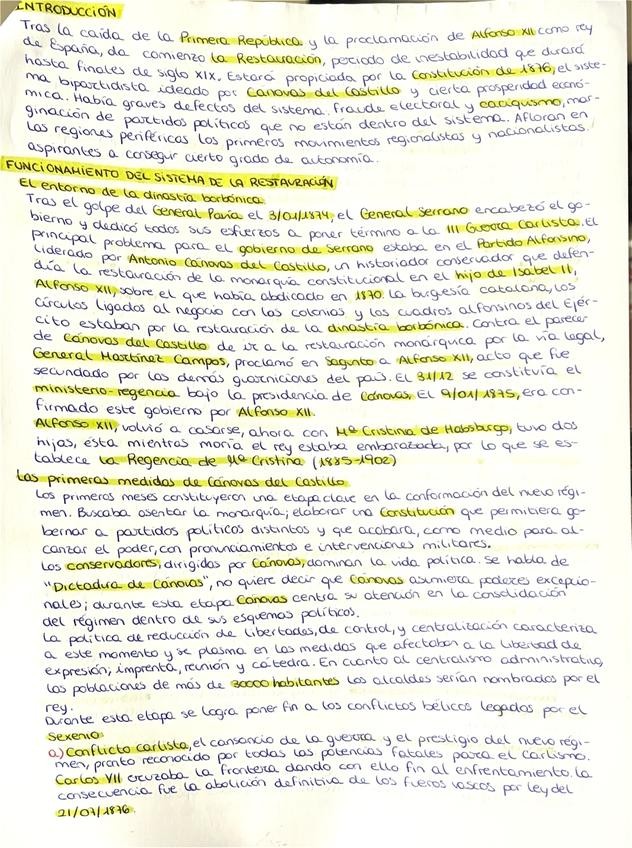 INTRODUCCIÓN
Tras la caída de la Primera República y la proclamación de Alfonso XII como rey
de España, da comienzo la Restauración, periodo de inestabilidad que durará
hasta finales de siglo XIX. Estará propiciada por la Constitución de 1876, el siste-
ma bipartidista ideado por Cánovas del Castillo y cierta prosperidad econó-
mica. Había graves defectos del sistema. Fraude electoral y caciquismo, mar-
ginación de partidos políticos que no están dentro del sistema. Afloran en
las regiones periféricas los primeros movimientos regionalistas y nacionalistas.
aspirantes a conseguir cierto grado de autonomía.
FUNCIONAMIENTO DEL SISTEMA DE LA RESTAURACIÓN
El entorno de la dinastía borbónica.
Tras el golpe del General Pavía el 3/01/1874, el General Serrano encabezó el go-
bierno y dedicó todos sus esfuerzos a poner término a la III Guerra Carlista. El
principal problema para el gobierno de Serrano estaba en el Partido Alfonsino,
liderado por Antonio Cánovas del Castillo, un historiador conservador que defen-
día la restauración de la monarquía constitucional en el hijo de Isabel II,
Alfonso XII, sobre el que había abdicado en 1870. la burguesía catalana, los
círculos ligados al negocio con las colonias y los cuadros alfonsinos del Ejér-
cito estaban por la restauración de la dinastía borbónica. Contra el parecer
de Cánovas del Castillo de ir a la restauración monárquica por la vía legal,
General Martínez Campos, proclamó en Sagunto a Alfonso XII, acto que fue
secundado por las demás guarniciones del país. El 31/12 se constituía el
ministerio-regencia bajo la presidencia de Cánovas. El 9/01/1875, era con-
firmado este gobierno por Alfonso XII.
Alfonso XII, volvió a casarse, ahora con Mª Cristina de Habsburgo, tuvo dos
hijas, ésta mientras moría el rey estaba embarazada, por lo que se es-
tablece la Regencia de Mª Cristina (1885-1902)
Las primeras medidas de Cánovas del Castillo
Los primeros meses constituyeron una etapa clave en la conformación del nuevo régi-
men. Buscaba asentar la monarquía; elaborar una Constitución que permitiera go-
bernar a partidos políticos distintos y que acabara, como medio para al-
canzar el poder, con pronunciamientos e intervenciones militares.
Los conservadores, dirigidos por Cánovas, dominan la vida política. Se habla de
"Dictadura de Cánovas", no quiere decir que Cánovas asumiera poderes excepcio-
nales; durante esta etapa Cánovas centra su atención en la consolidación
del régimen dentro de sus esquemas políticos.
La política de reducción de libertades, de control, y centralización caracteriza
a este momento y se plasma en las medidas que afectaban a la libertad de
expresión; imprenta, reunión y cátedra. En cuanto al centralismo administrativo,
las poblaciones de más de 30000 habitantes los alcaldes serían nombrados por el
rey.
Durante esta etapa se logra poner fin a los conflictos bélicos legados por el
Sexenio:
a) Conflicto carlista, el cansancio de la guerra y el prestigio del nuevo régi-
men, pronto reconocido por todas las potencias fatales para el Carlismo.
Carlos VII cruzaba la frontera dando con ello fin al enfrentamiento. la
consecuencia fue la abolición definitiva de los fueros vascos por ley del
21/07/1876.